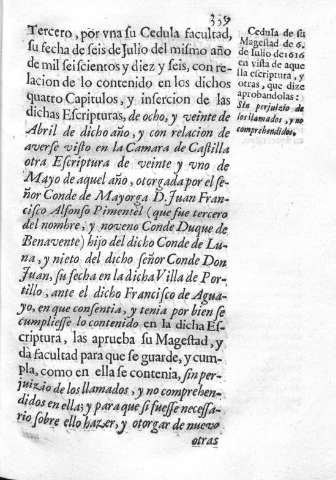 339
Tercero, por vna su Cedula facultad,
su fecha de seis de Julio del mismo año
de mil seiscientos y diez y seis, con re-
lacion de lo contenido en los dichos
quatro Capitulos, y insercion de las
dichas Escripturas, de ocho, y veinte de
Abril de dicho año, y con relacion de
averse visto en la Camara de Castilla
otra Escriptura de veinte y vno de
Mayo de aquel año, otorgada por el se-
ñor Conde de Mayorga D. Juan Fran-
cisco Alfonso Pimentel (que fue tercero
del nombre, y noveno Conde Duque de
Benavente) hijo del dicho Conde de Lu-
na, y nieto del dicho señor Conde Don
Juan, su fecha en la dicha Villa de Por-
tillo, ante el dicho Francisco de Agua-
yo, en que consentia, y tenia por bien se
cumpliesse lo contenido en la dicha Es-
criptura, las aprueba su Magestad, y
dà facultad para que se guarde, y cum-
pla, como en ella se contenia, sin per-
juizio de los llamados, y no comprehen-
didos en ella; y para que si fuesse necessa-
rio sobre ello hazer, y otorgar de nuevo
otras
Cedula de su
Magestad de 6.
de Julio de 1616
en vista de aque
lla escriptura, y
otras, que dize
aprobandolas:
Sin perjuizio de
los llamados, y no
comprehendidos.